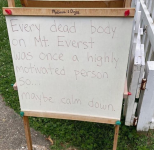 Melissa & Doug
Every dead body
on Mt. Everst
was once a highly
motivated person
so...
maybe calm down